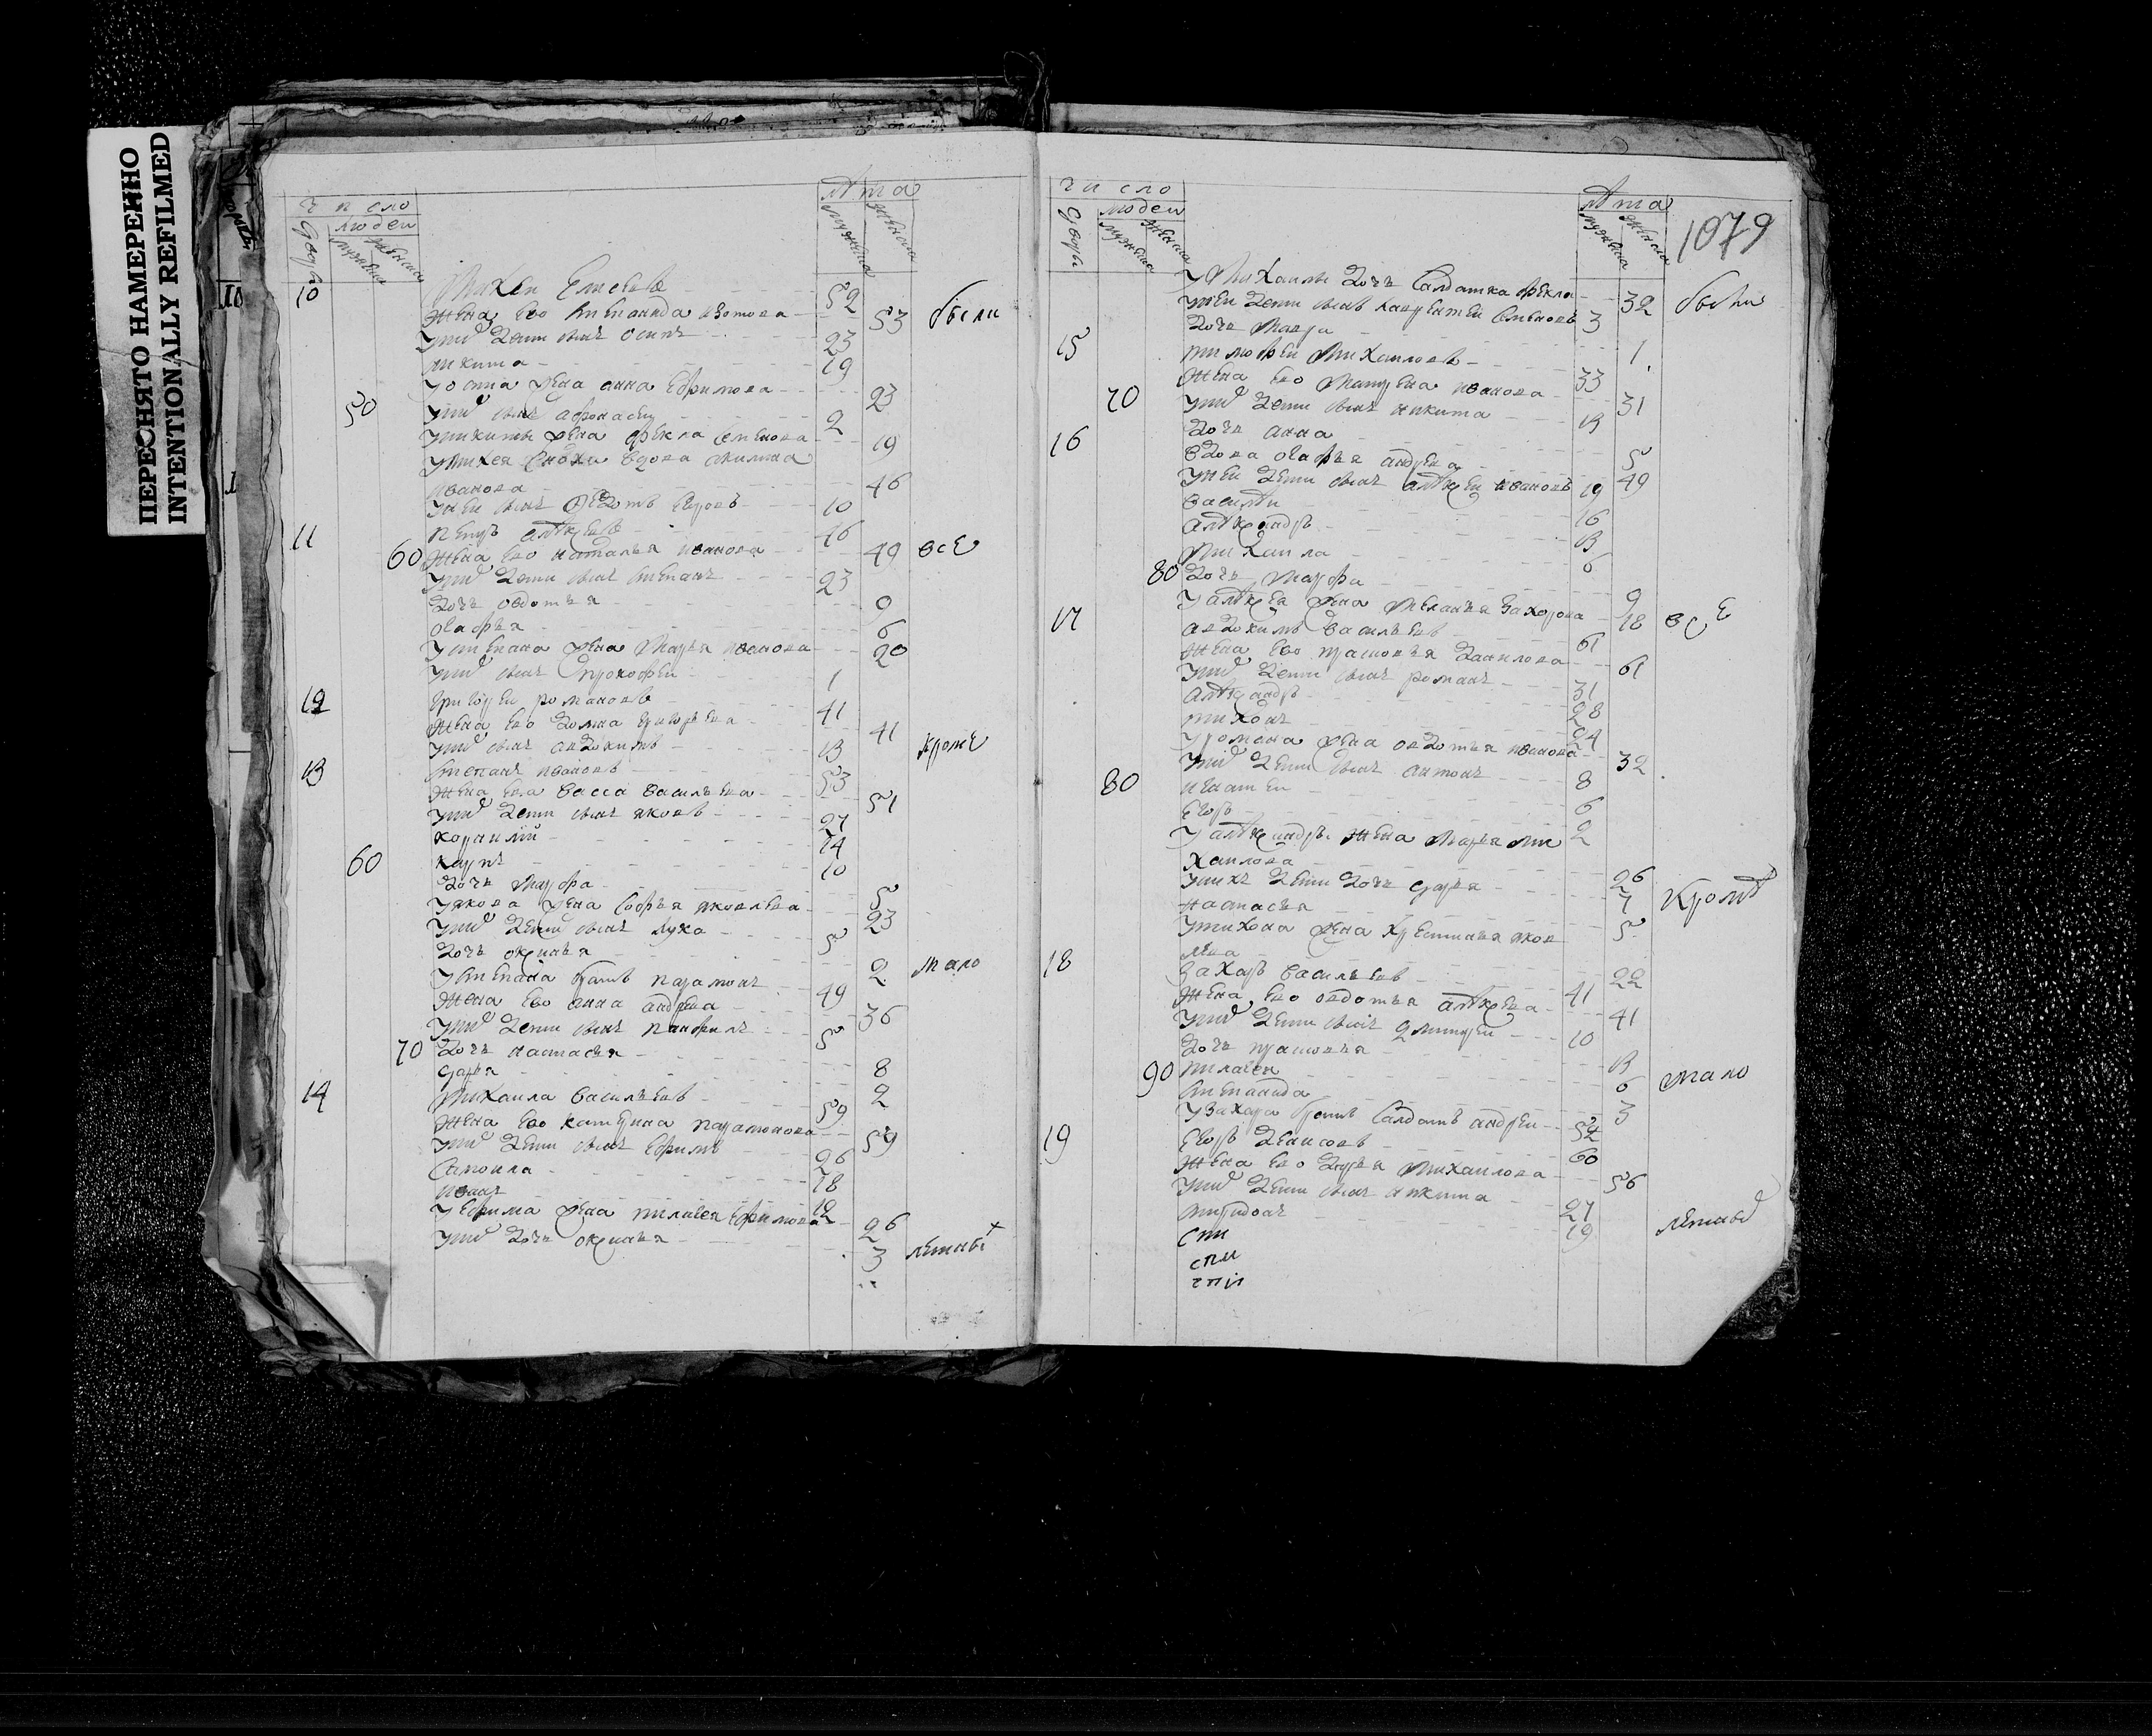 ПЕРЕСНЯТО НАМЕРЕННО
INTENTIONALLY REFILMED
число
людей
дворы
мужеска
женска
лѣта
мужеска
женска
10 Михей Елисеев 52
жена ево Степанида 53 были
у них дети сын Осип 23
Никита 19
у Осипа жена Анна Ефимова 23
50 у них сын Афонасей 2
у Никиты жена Фекла Семенова 19
у Михея сноха вдова Акилина
Иванова 46
у ней сын Федот Егоров 10
11 Петр Алѣксеев 46
60 жена ево Наталья Иванова 49 все
у них дети сын Степан 23
дочь Овдотья 9
Огафья 6
у Степана жена Марья Иванова 20
у них сын Прокофей 1
12 Григорей Романов 41
жена ево Домна Григорьева 41
у них сын Авдоким 13 кроме
13 Степан Иванов 53
жена ево Васса Васильева 51
у них дети сын Яков 27
Корнилий 14
60 Карп 10
дочь Марфа 5
у Якова жена Софья Яковлева 23
у них дети сын Лука 5
дочь Оксинья 2 мало
у Степана брат Парамон 49
жена ево Анна Андреева 36
у них дети сын Панфил 5
70 дочь Настасья 8
Дарья 2
14 Михаила Васильев 59
жена ево Катерина Парамонова 59
у них дети сын Ефим 26
Самоила 18
Иван 12
у Ефима жена Пилагея Ефимова 26
у них дочь Оксинья 3 летных
число
людей
дворы
мужеска
женска
лѣта
мужеска
женска
1079
у Михаилы дочь салдатка Фекла 32 были
у ней дети сын Лаврентей Семенов 3
дочь Мавра 1
15 Тимофей Михайлов 33
жена ево Матрена Иванова 31
70 у них дети сын Никита 13
дочь Анна 5
16 вдова Огафья Андреева 49
у ней дети сын Алѣксей Иванов 19
Василей 16
Алѣксандр 13
Михаила 6
80 дочь Марфа 9
у Алѣксея жена Меланья Захорова 18 все
17 Авдоким Васильев 61
жена ево Прасковья Данилова 61
у них дети сын Роман 31
Алѣксандр 28
Тихон 24
у Романа жена Овдотья Иванова 32
у них дети сын Антон 8
80 Игнатей 6
Егор 2
у Алѣксандра жена Марья Ми
хаилова 26
у них дети дочь Дарья 7 Кромѣ
Настасья 5
у Тихона жена Хрестинья Яков
лева 22
18 Захар Васильев 41
жена ево Овдотья Алѣксева 41
у них дети сын Дмитрей 10
дочь Прасковья 13
90 Пилагея 6 мало
Степанида 3
у Захара брат салдат Андрей 52
19 Егор Денисов 60
жена ево Дарья Михаилова 56
у них дети сын Никита 27
Спиридон 19 летных
спи
спи